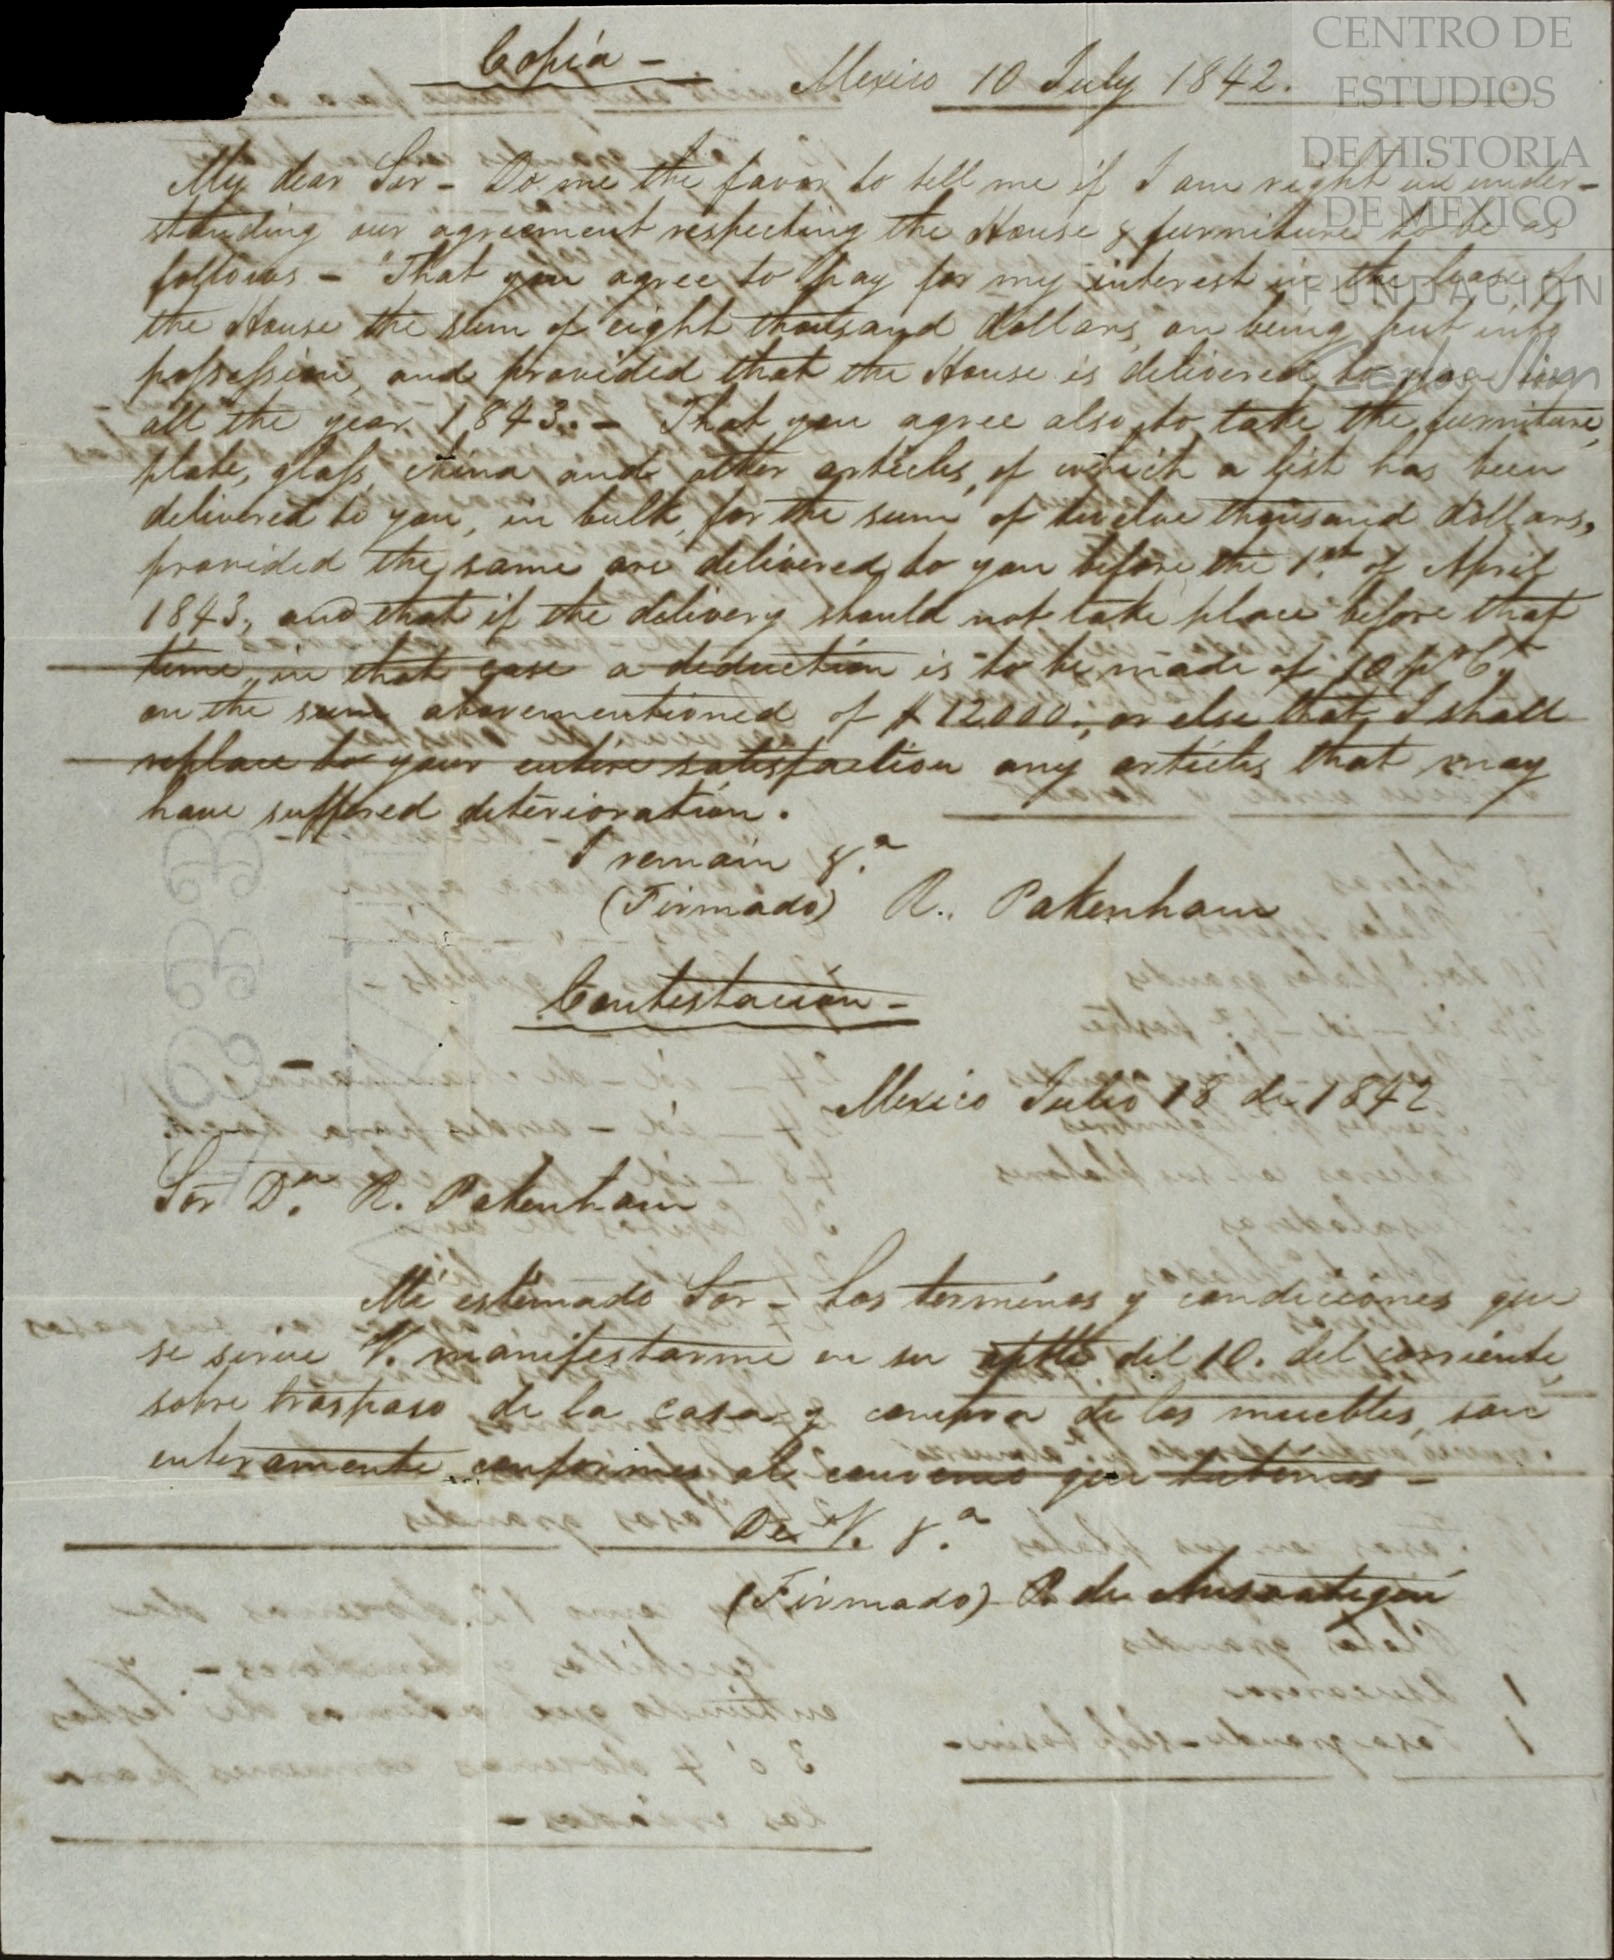 CENTRO DE
ESTUDIOS
DE HISTORIA
DE MEXICO
FUNDACIÓN
Carlos Slim
Copia -
Mexico 10 July 1842.
My dear Sir - Do me the favor to tell me if I am right in under-
standing our agreement respecting the House & furniture to be as
follows - That you agree to pay for my interest in the lease of
the House the sum of eight thousand dollars, on being put into
possession, and provided that the House is delivered to you
all the year 1843. - That you agree also to take the furniture,
plate, glass, china and other articles, of which a list has been
delivered to you, in bulk, for the sum of twelve thousand dollars,
provided the same are delivered to you before the 1st. of April
1843, and that if the delivery should not take place before that
time, in that case a deduction is to be made of 10 pr Ct.
on the sum abovementioned of $12000., or else that I shall
replace to your entire satisfaction any articles that may
have suffered deterioration.
I remain &.a
(Firmado) R. Pakenham
Contestación -
Mexico Julio 18 de 1842
Sor Dn. R. Pakenham
Mi estimado Sor - Los términos y condiciones que
se sirve V. manifestarme en su del 10. del corriente,
sobre traspaso de la casa y compra de los muebles, son
enteramente conformes al convenio que tubimos -
De V. &.a
(Firmado) R. de Ausoategui